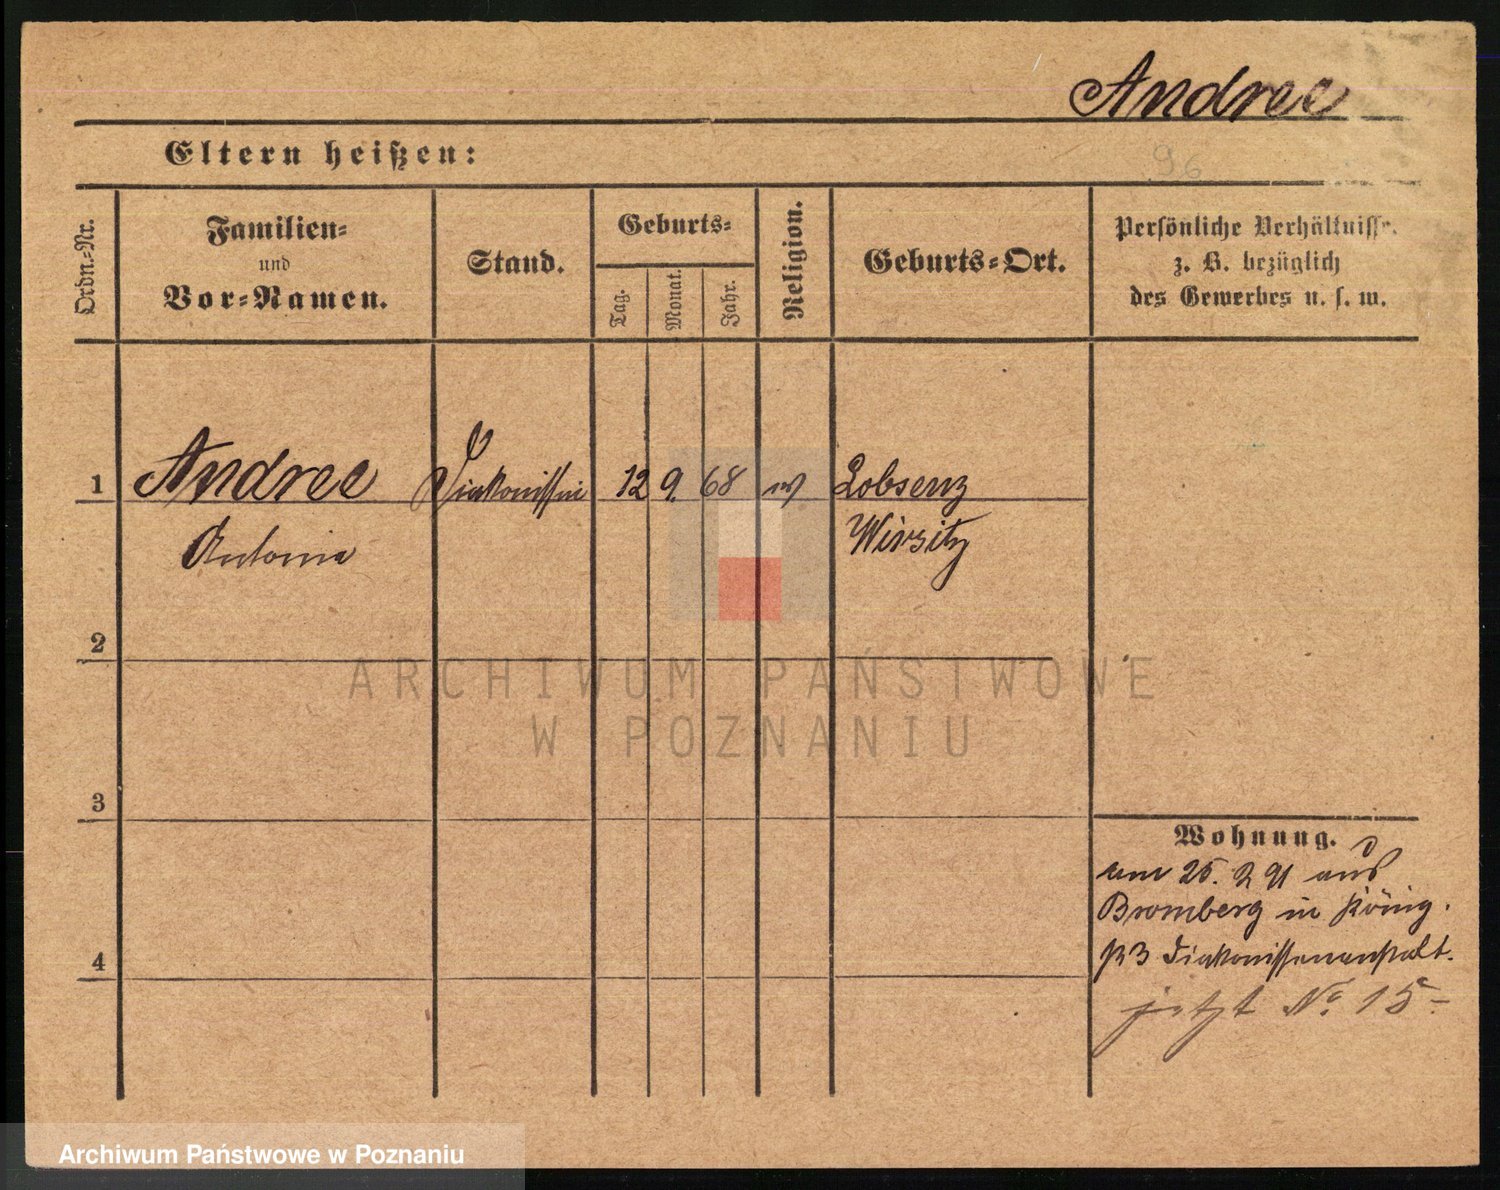 Andree
Eltern heißen:
96
Ordn.=Nr.
Familien=
und
Vor=Namen.
Stand.
Geburts=
Tag.
Monat.
Jahr.
Religion.
Geburts=Ort.
Persönliche Verhältnisse.
z. B. bezüglich
des Gewerbes u. s. w.
1 Andree Diakonissin 12 9. 68 ev Lobsenz
Antonie Wirsitz
2
ARCHIWUM PAŃSTWOWE
W POZNANIU
3
Wohnung.
am 25. 2 91 aus
Bromberg in König.
pl 3 Diakonissenanstalt.
4
jetzt No. 15-
Archiwum Państwowe w Poznaniu